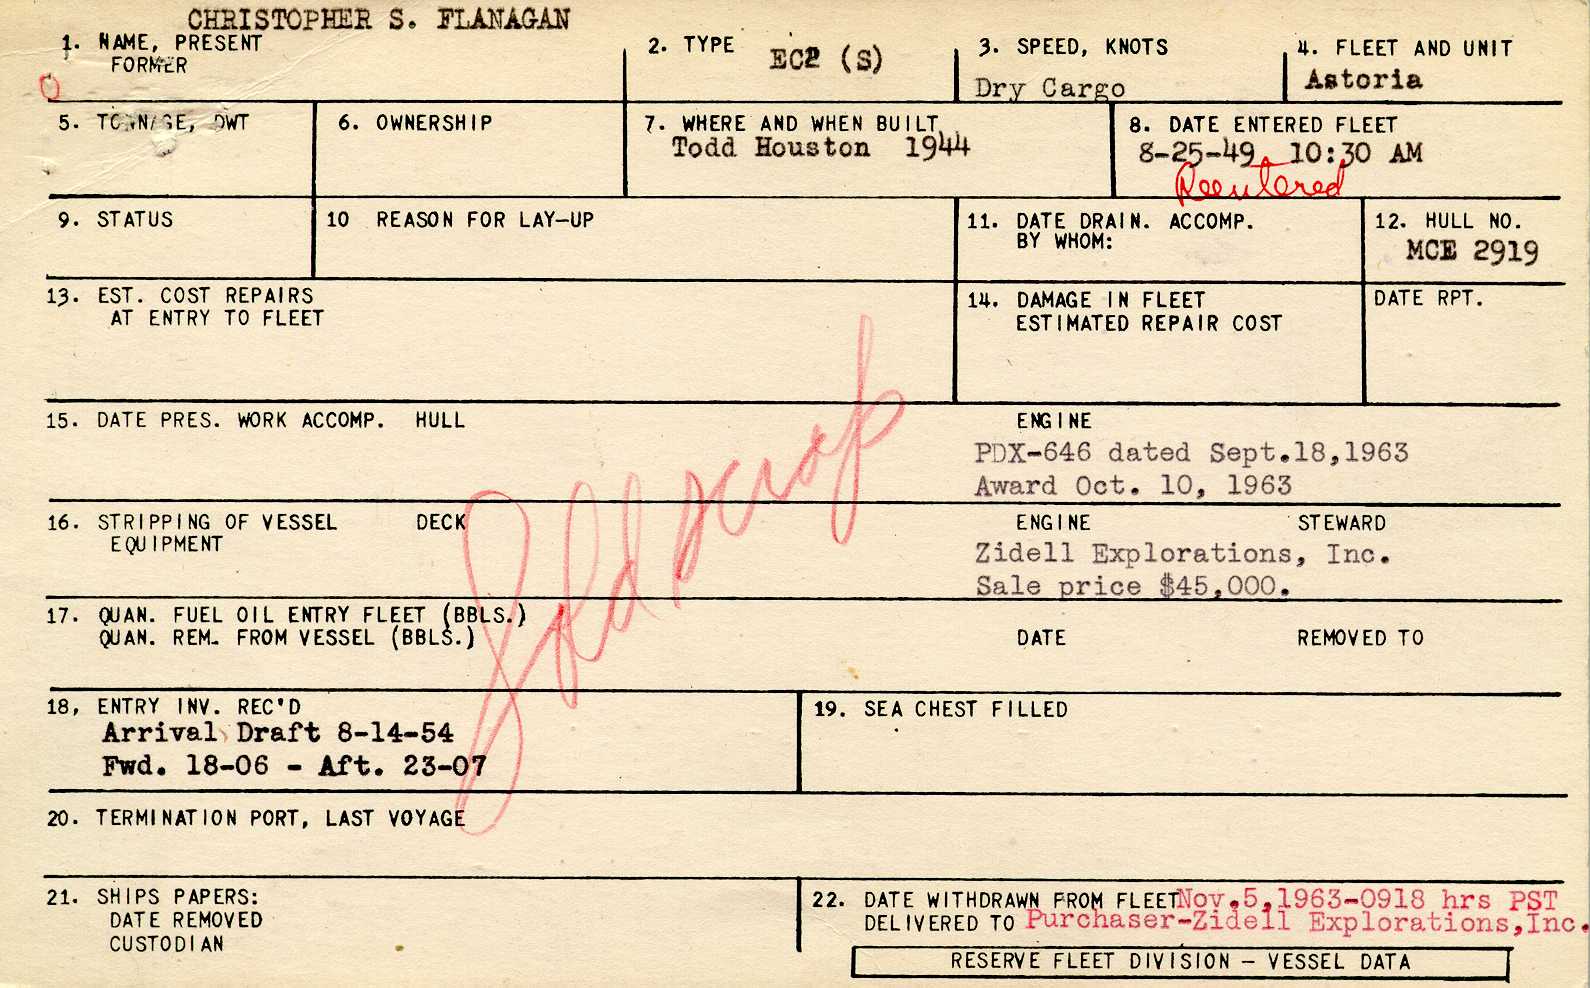 CHRISTOPHER S. FLANAGAN
1. NAME, PRESENT
FORMER
2. TYPE
EC2 (S)
3. SPEED, KNOTS
Dry Cargo
4. FLEET AND UNIT
Astoria
5. TONNAGE, DWT
6. OWNERSHIP
7. WHERE AND WHEN BUILT
Todd Houston 1944
8. DATE ENTERED FLEET
8-25-49, 10:30 AM
Reentered
9. STATUS
10 REASON FOR LAY-UP
11. DATE DRAIN. ACCOMP.
BY WHOM:
12. HULL NO.
MCE 2919
13. EST. COST REPAIRS
AT ENTRY TO FLEET
14. DAMAGE IN FLEET
ESTIMATED REPAIR COST
DATE RPT.
15. DATE PRES. WORK ACCOMP. HULL
ENGINE
PDX-646 dated Sept.18,1963
Award Oct. 10, 1963
Sold scrap
16. STRIPPING OF VESSEL DECK
EQUIPMENT
ENGINE STEWARD
Zidell Explorations, Inc.
Sale price $45,000.
17. QUAN. FUEL OIL ENTRY FLEET (BBLS.)
QUAN. REM. FROM VESSEL (BBLS.)
DATE REMOVED TO
18, ENTRY INV. REC'D
Arrival Draft 8-14-54
Fwd. 18-06 - Aft. 23-07
19. SEA CHEST FILLED
20. TERMINATION PORT, LAST VOYAGE
21. SHIPS PAPERS:
DATE REMOVED
CUSTODIAN
22. DATE WITHDRAWN FROM FLEET Nov.5,1963-0918 hrs PST
DELIVERED TO Purchaser-Zidell Explorations,Inc.
RESERVE FLEET DIVISION - VESSEL DATA